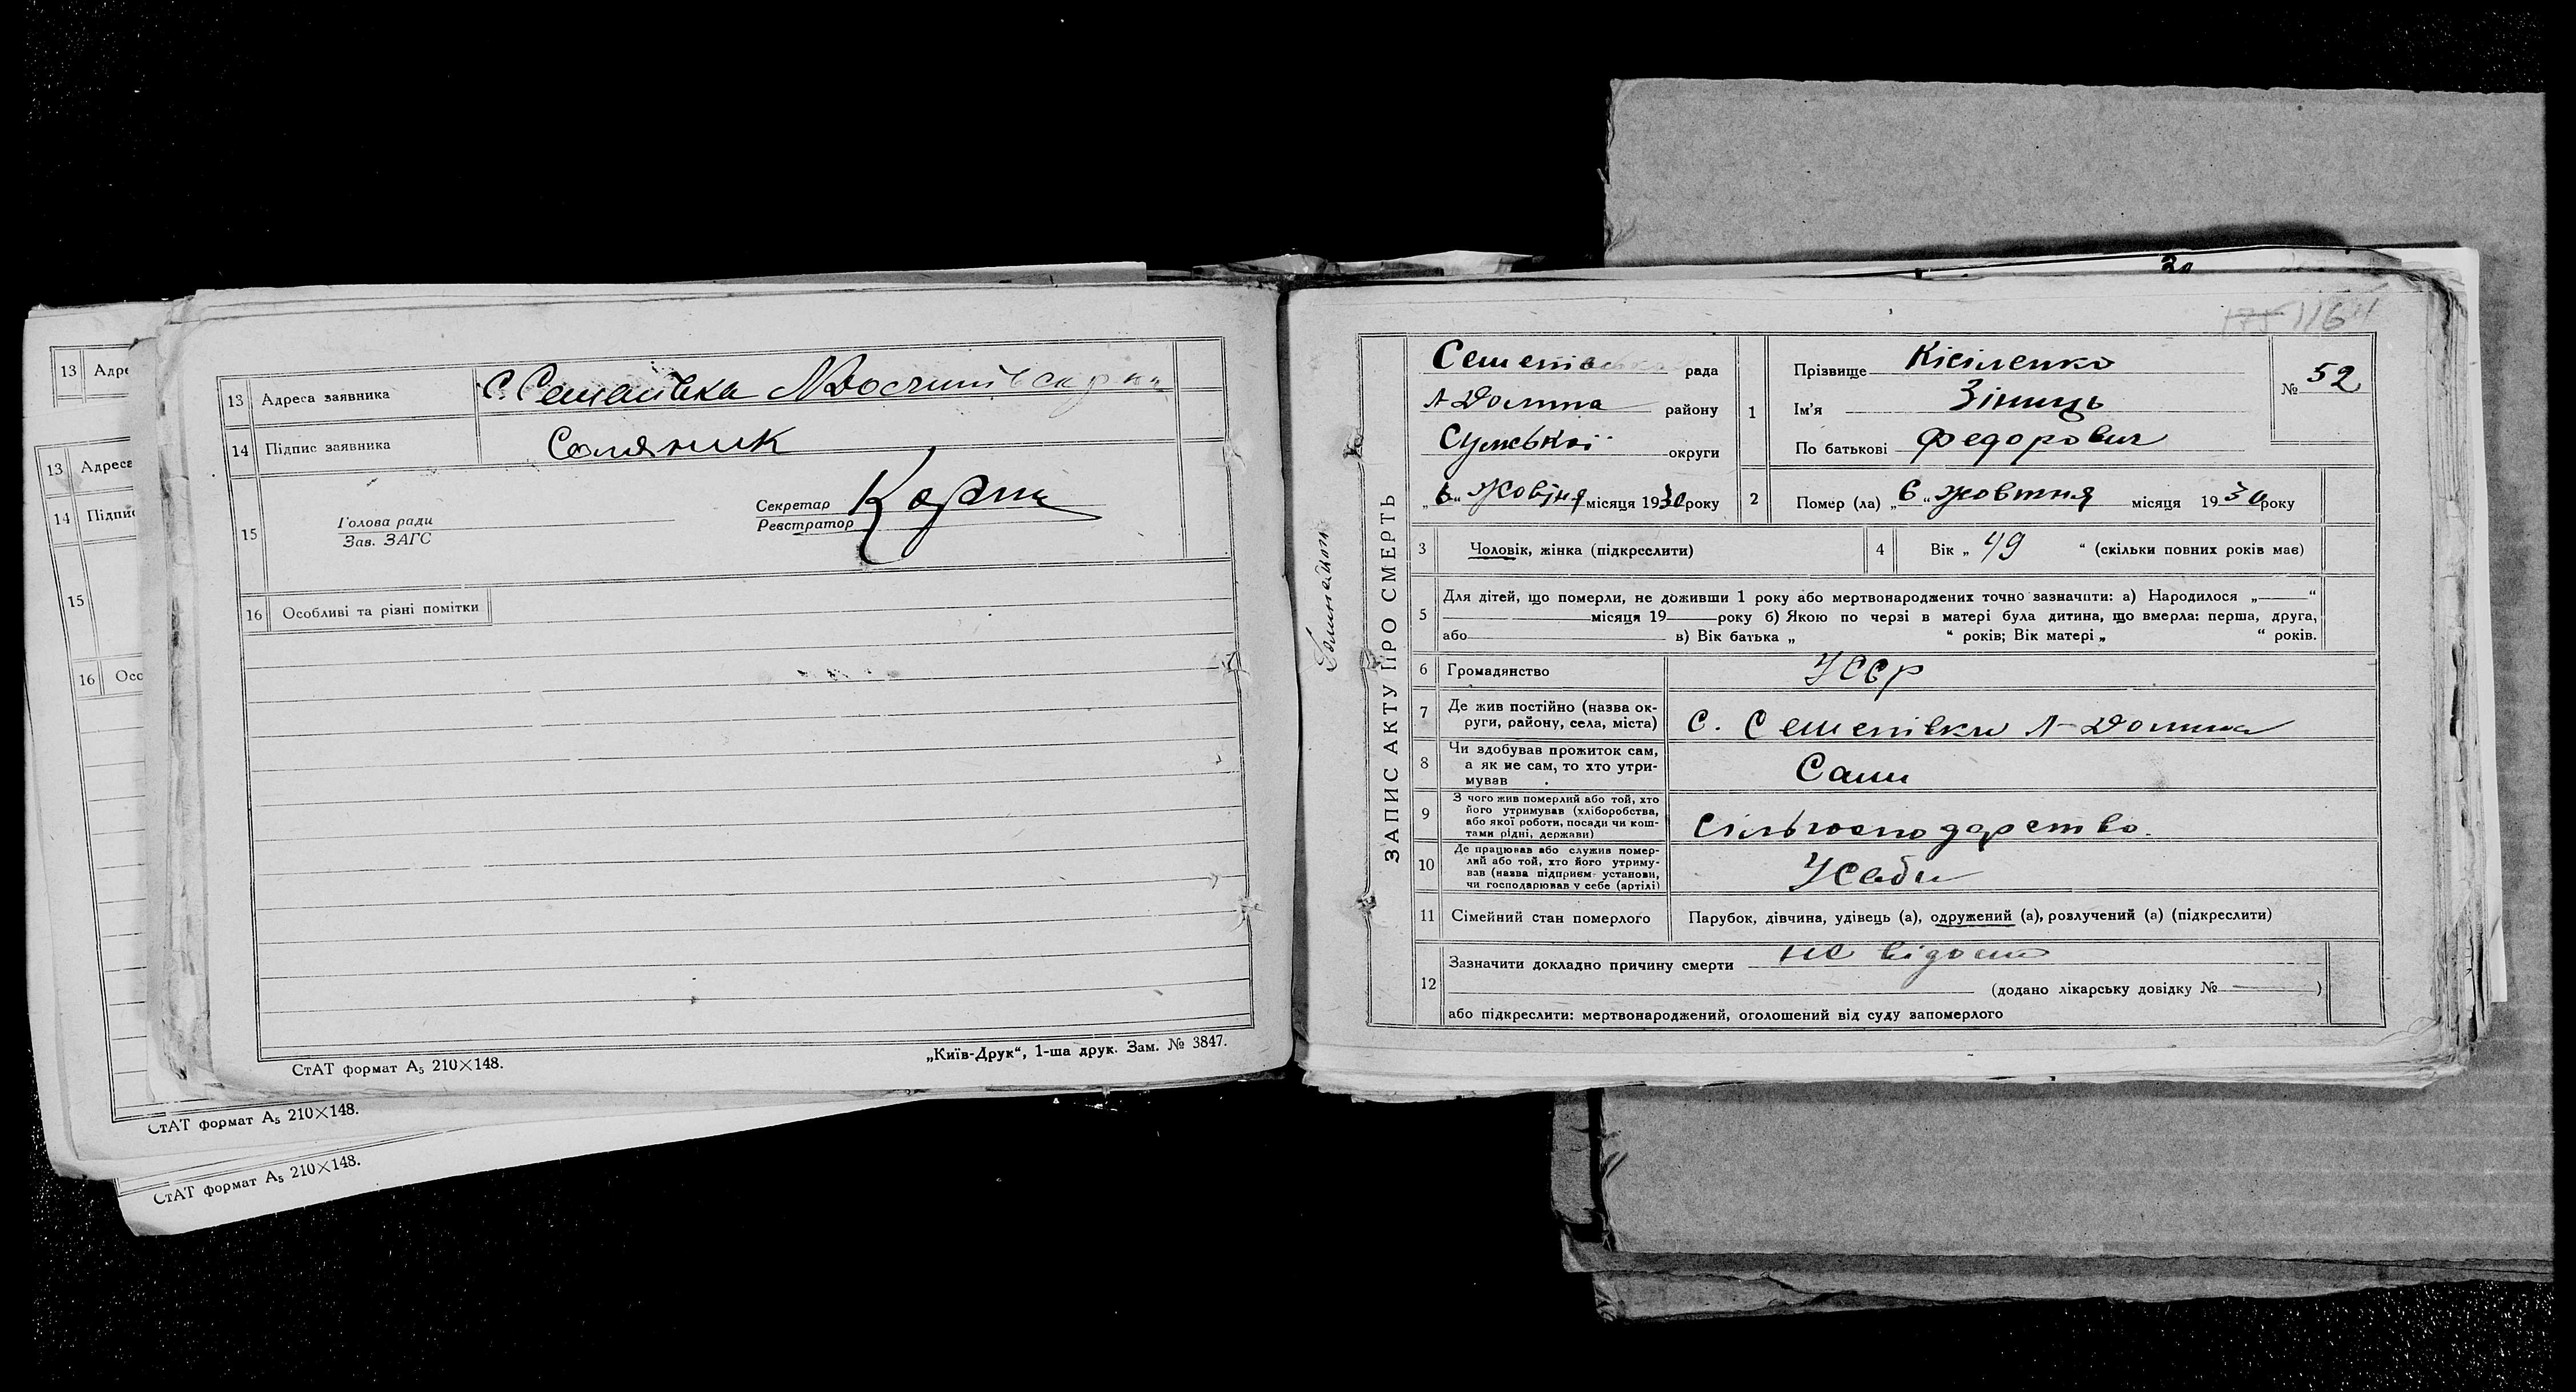 13 Адре
13 Адреса
14 Підпис
15
16 Осс
СтАТ формат А₅ 210×148.
СтАТ формат А₅ 210×148.
13 Адреса заявника С. Семенівка
14 Підпис заявника Соляник
15 Голова ради
Зав. ЗАГС
Секретар
Реєстратор
16 Особливі та різні помітки
СтАТ формат А₅ 210×148.
„Київ-Друк“, 1-ша друк. Зам. № 3847.
30
175 1164
ЗАПИС АКТУ ПРО СМЕРТЬ
Семенівська рада
Л Долина району
Сумської округи
„6“ Жовтня місяця 1930 року
1 Прізвище Кісіленко
Ім'я Зінець
По батькові Федорович
№ 52
2 Помер (ла) „6“ жовтня місяця 1930 року
3 Чоловік, жінка (підкреслити)
4 Вік „ 49 “ (скільки повних років має)
5 Для дітей, що померли, не доживши 1 року або мертвонароджених точно зазначити: а) Народилося „ “
місяця 19 року б) Якою по черзі в матері була дитина, що вмерла: перша, друга,
або в) Вік батька „ “ років; Вік матері „ “ років.
6 Громадянство УССР
7 Де жив постійно (назва ок-
руги, району, села, міста) с. Семенівка Л-Долина
8 Чи здобував прожиток сам,
а як не сам, то хто утри-
мував Сам
9 З чого жив померлий або той, хто
його утримував (хліборобства,
або якої роботи, посади чи кош-
тами рідні, держави) сільгосподарство.
10 Де працював або служив помер-
лий або той, хто його утриму-
вав (назва підприєм- установи,
чи господарював у себе (артілі) У себе
11 Сімейний стан померлого Парубок, дівчина, удівець (а), одружений (а), розлучений (а) (підкреслити)
12 Зазначити докладно причину смерти не відома
(додано лікарську довідку № )
або підкреслити: мертвонароджений, оголошений від суду запомерлого